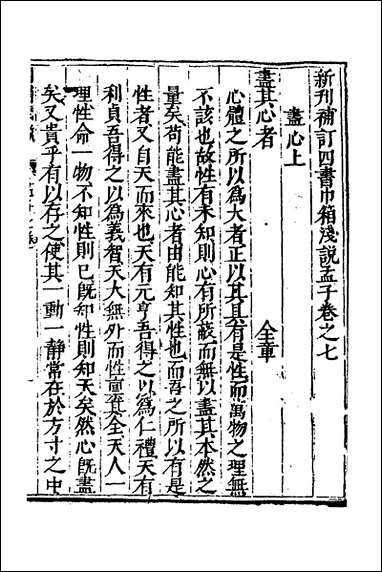 新刊補訂四書巾箱淺說孟子卷之七
盡心上
盡其心者 全章
心體之所以為大者正以其具有是性而萬物之理無
不該也故性有未知則心有所蔽而無以盡其本然之
量矣苟能盡其心者由能知其性也而吾之所以有是
性者又自天而來也天有元亨吾得之以為仁禮天有
利貞吾得之以為義智天大無外而性稟其全天人一
理性命一物不知性則已旣知性則知天矣然心旣盡
矣又貴乎有以存之使其一動一靜常在於方寸之中